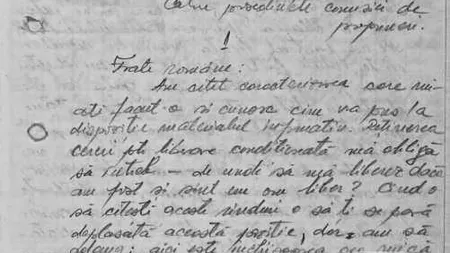 Către președintele comisiei de
propuneri.
1
Frate române:
Am citit caracterizarea care mi-
ați făcut-o și cunosc cine va pus la
dispoziție materialul informativ. Reținerea
cererii ptr. liberare condiționată mă obligă
să întreb - de unde să mă liberez dacă
am fost și sînt un om liber? Cînd o
să citești aceste rînduri o să ți se pară
deplasată această poziție, dar am să
aici este închisoarea cu mică